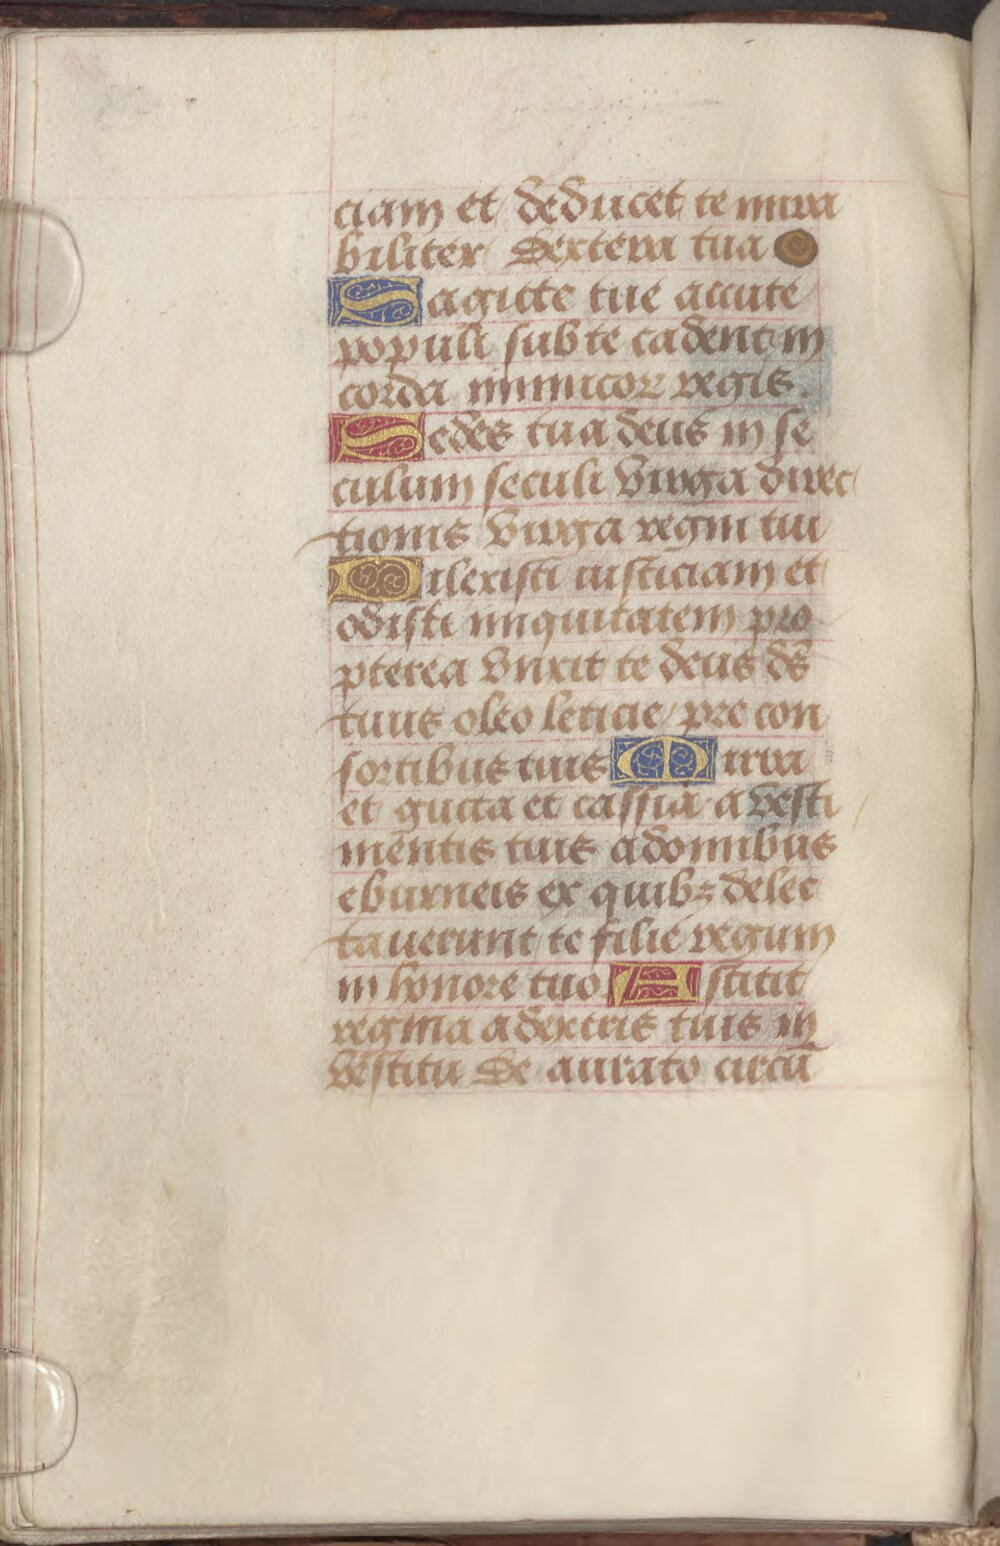 ciam et deducet te mira
biliter dextera tua
Sagitte tue accute
populi sub te cadent in
corda inimicoꝝ regis.
Sedes tua deus in se
culum seculi virga direc
tionis virga regni tui
Dilexisti iusticiam et
odisti iniquitatem pro
pterea vnxit te deus ds̄
tuus oleo leticie pre con
sortibus tuis Mirra
et gutta et cassia a vesti
mentis tuis a domibus
eburneis ex quibꝫ delec
tauerunt te filie regum
in honore tuo Astitit
regina a dextris tuis in
vestitu de aurato circū